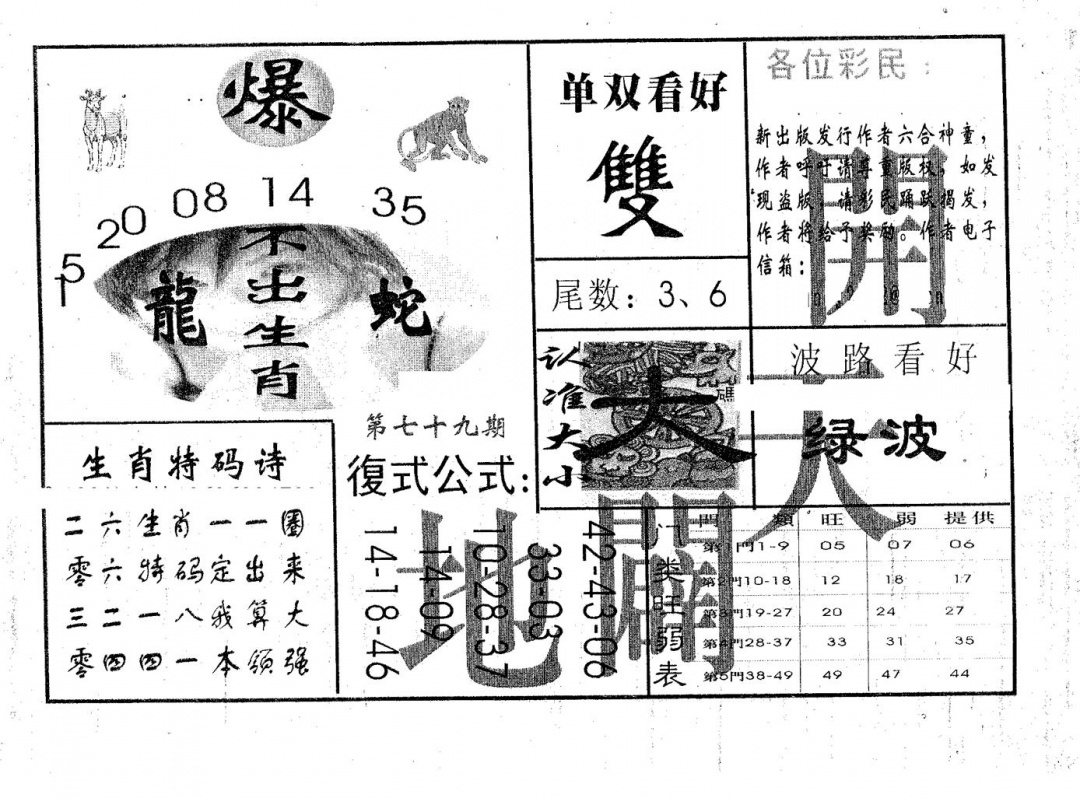 爆
15 20 08 14 35
龍
不出生肖
蛇
单双看好
雙
尾数：3、6
各位彩民：
新出版发行作者六合神童，
作者呼吁请尊重版权，如发
现盗版，请彩民踊跃揭发，
作者将给予奖励。作者电子
信箱：
開
天
闢
地
认准大小
大
碼
波路看好
绿波
生肖特码诗
二六生肖一一圈
零六特码定出来
三二一八我算大
零四四一本领强
第七十九期
復式公式：
14-18-46
14-09
10-28-37
33-03
42-43-06
门类旺弱表
門類 旺 弱 提供
第1門1-9 05 07 06
第2門10-18 12 18 17
第3門19-27 20 24 27
第4門28-37 33 31 35
第5門38-49 49 47 44